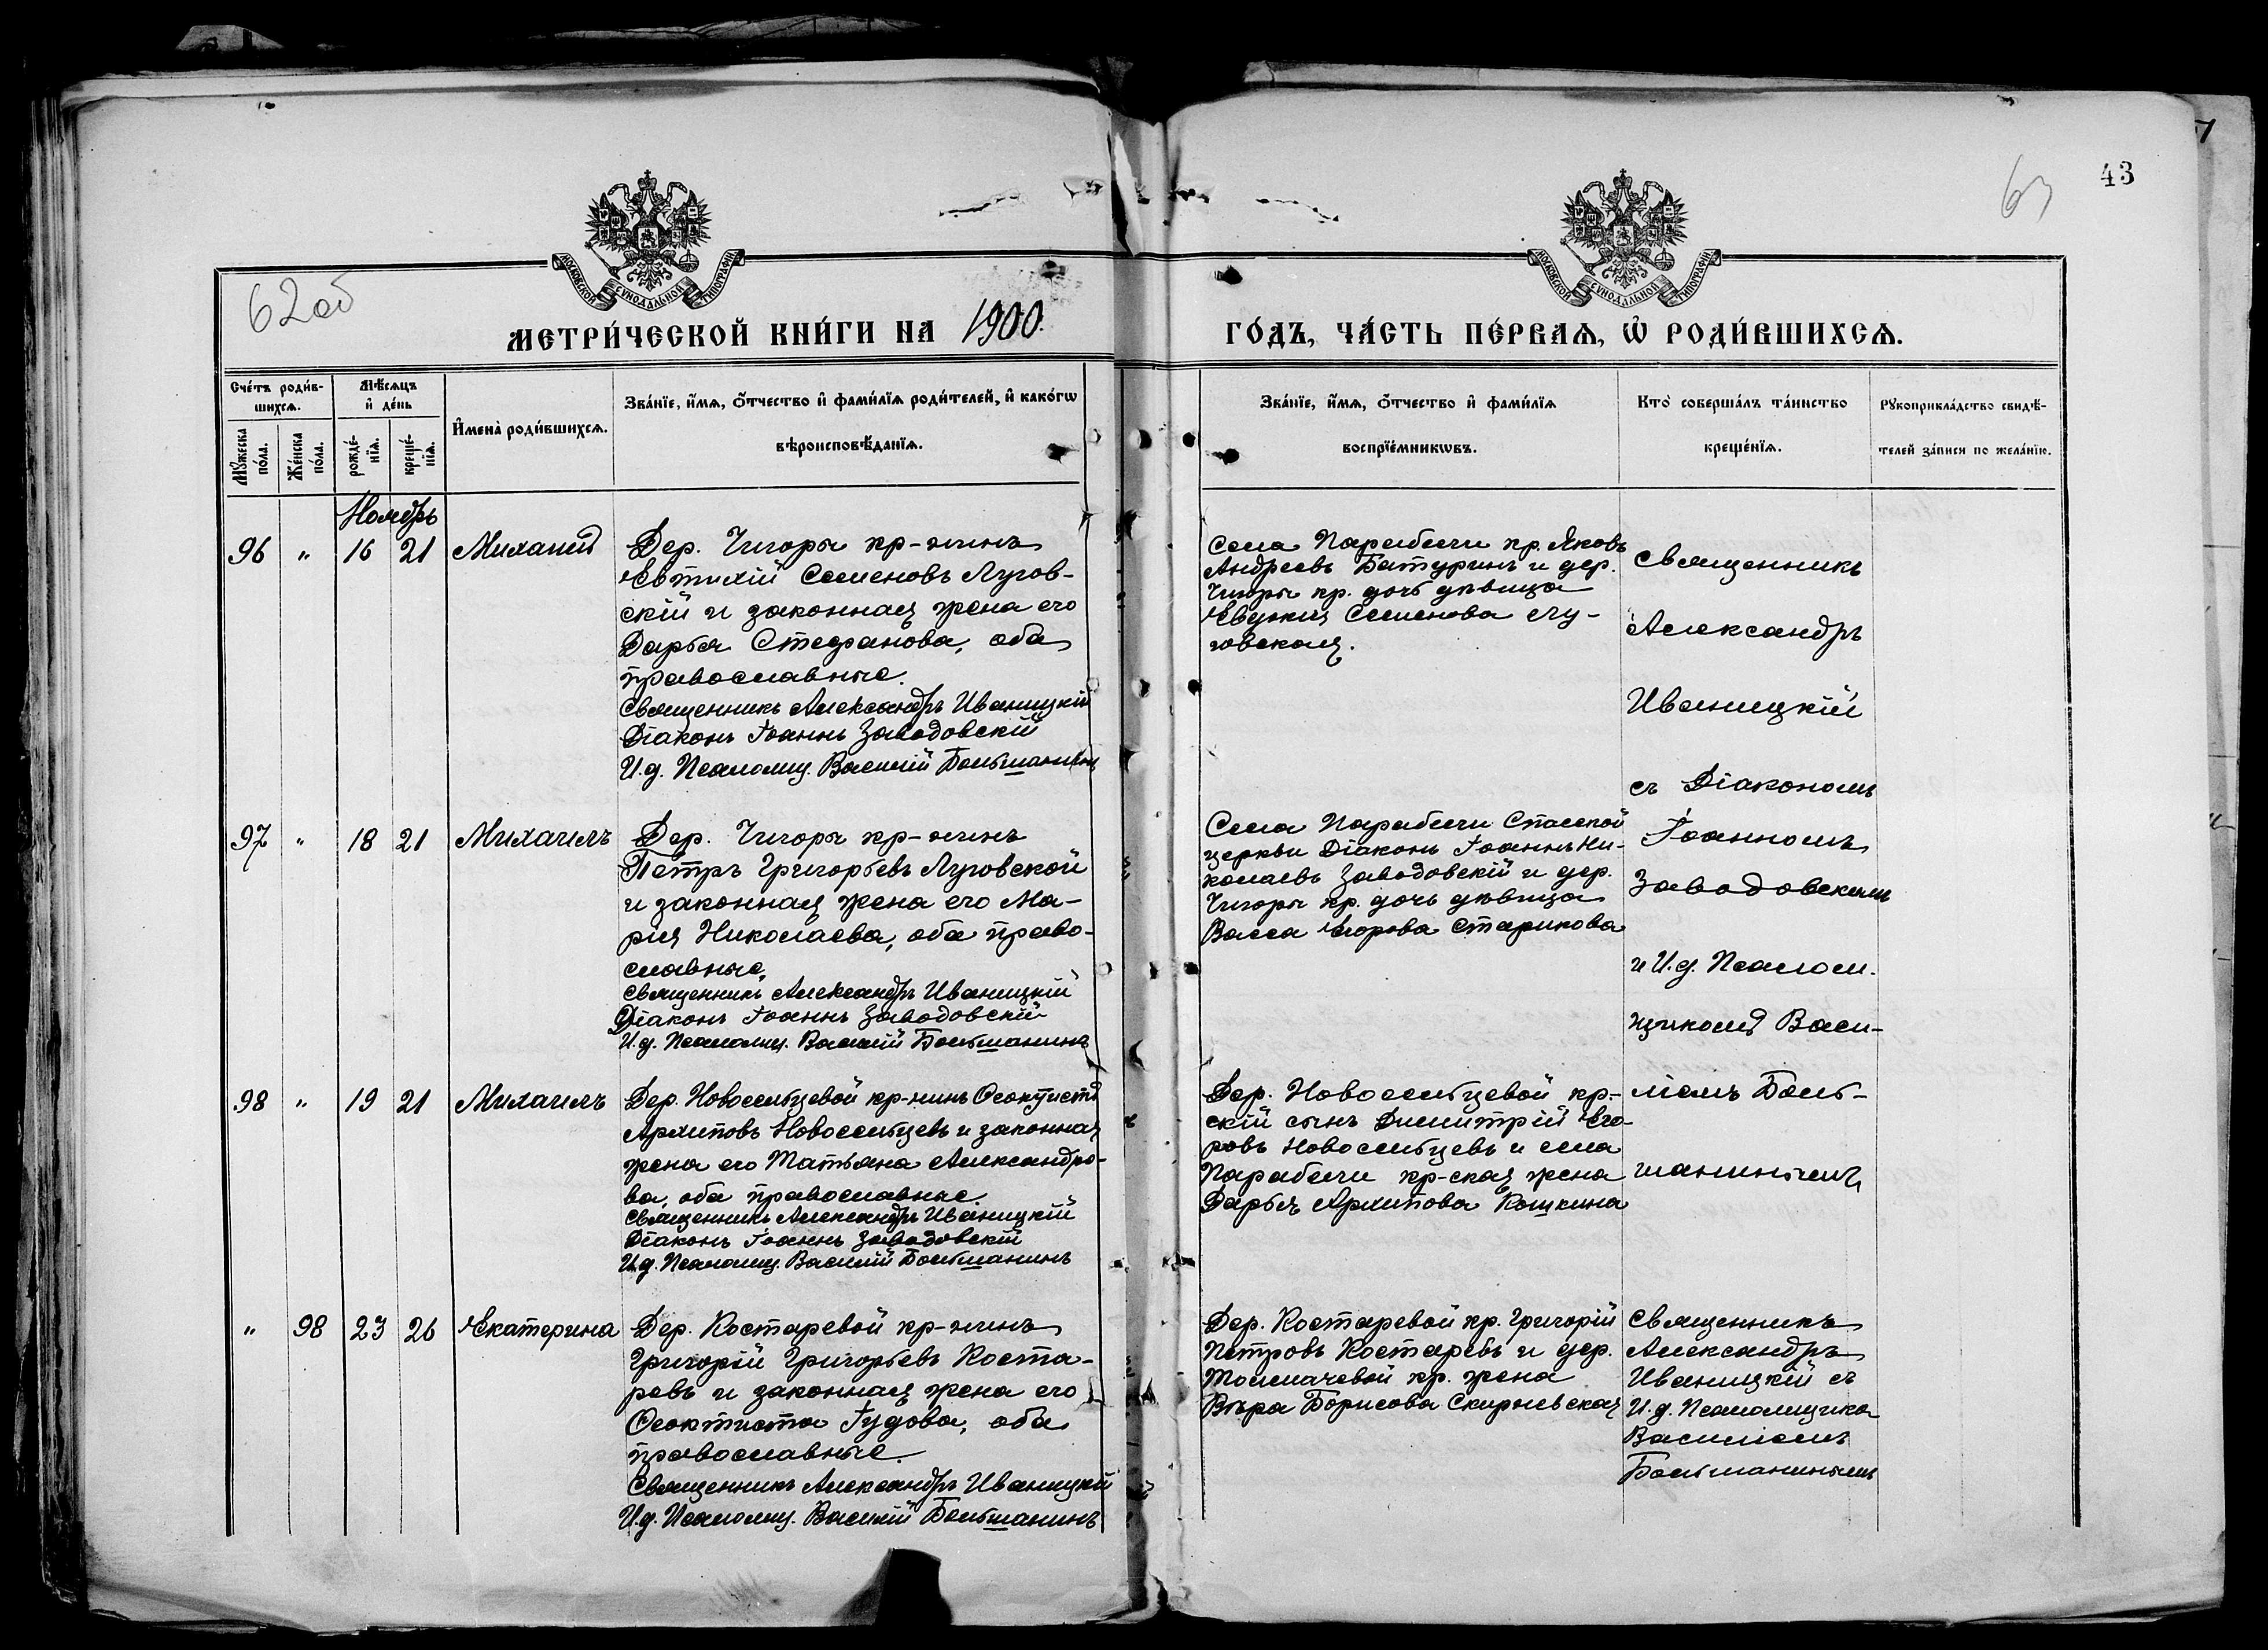 43
63
62об
МОСКОВСКОЙ СѴНОДАЛЬНОЙ ТИПОГРАФІИ
МОСКОВСКОЙ СѴНОДАЛЬНОЙ ТИПОГРАФІИ
МЕТРИ́ЧЕСКОЙ КНИ́ГИ НА 1900.
ГО́ДЪ, ЧА́СТЬ ПЕ́РВАѦ, Ѡ҆ РОДИ́ВШИХСѦ.
Сче́тъ роди́в-
шихсѧ.
Мꙋ́жеска по́ла.
Же́нска по́ла.
Мѣ́сѧцъ
и҆ де́нь
рожде́-
нїѧ.
креще́-
нїѧ.
И҆мена̀ роди́вшихсѧ.
Зва́нїе, и҆́мѧ, ѻ҆́тчество и҆ фами́лїѧ роди́телей, и҆ како́гѡ
вѣроисповѣ́данїѧ.
Зва́нїе, и҆́мѧ, ѻ҆́тчество и҆ фами́лїѧ
воспрїе́мникѡвъ.
Кто̀ соверша́лъ та́инство
креще́нїѧ.
Рꙋкоприкла́дство свидѣ́-
телей за́писи по жела́нїю.
Ноябрь
96 " 16 21 Михаилъ
Дер. Чигоры кр-нинъ
Евтихій Семеновъ Лугов-
скій и законная жена его
Дарья Стефанова, оба
православные.
Священникъ Александръ Иваницкій
Діаконъ Іоаннъ Заводовскій
И.д. Псаломщ. Василій Большанинъ
Села Парабели кр. Яковъ
Андреевъ Батуринъ и дер.
Чигоры кр. дочь дѣвица
Евдокія Семенова Лу-
говская.
Священникъ
Александръ
Иваницкій
съ Діакономъ
Іоанномъ
Заводовскимъ
и И.д. Псалом-
щикомъ Васи-
ліемъ Боль-
шанинымъ
97 " 18 21 Михаилъ
Дер. Чигоры кр-нинъ
Петръ Григорьевъ Луговской
и законная жена его Ма-
рія Николаева, оба право-
славные.
Священникъ Александръ Иваницкій
Діаконъ Іоаннъ Заводовскій
И.д. Псаломщ. Василій Большанинъ
Села Парабели Спасской
церкви Діаконъ Іоаннъ Ни-
колаевъ Заводовскій и дер.
Чигоры кр. дочь дѣвица
Васса Егорова Старикова
98 " 19 21 Михаилъ
Дер. Новосельцевой кр-нинъ Ѳеоктистъ
Архиповъ Новосельцевъ и законная
жена его Татьяна Александро-
ва, оба православные.
Священникъ Александръ Иваницкій
Діаконъ Іоаннъ Заводовскій
И.д. Псаломщ. Василій Большанинъ
Дер. Новосельцевой кр-
скій сынъ Димитрій Его-
ровъ Новосельцевъ и села
Парабели кр-ская жена
Дарья Архипова Кошкина
" 98 23 26 Екатерина
Дер. Костаревой кр-нинъ
Григорій Григорьевъ Коста-
ревъ и законная жена его
Ѳеоктиста Гудова, оба
православные.
Священникъ Александръ Иваницкій
И.д. Псаломщ. Василій Большанинъ
Дер. Костаревой кр. Григорій
Петровъ Костаревъ и дер.
Толмачевой кр. жена
Вѣра Борисова Скирневская
Священникъ
Александръ
Иваницкій съ
И.д. Псаломщика
Василіемъ
Больманинымъ